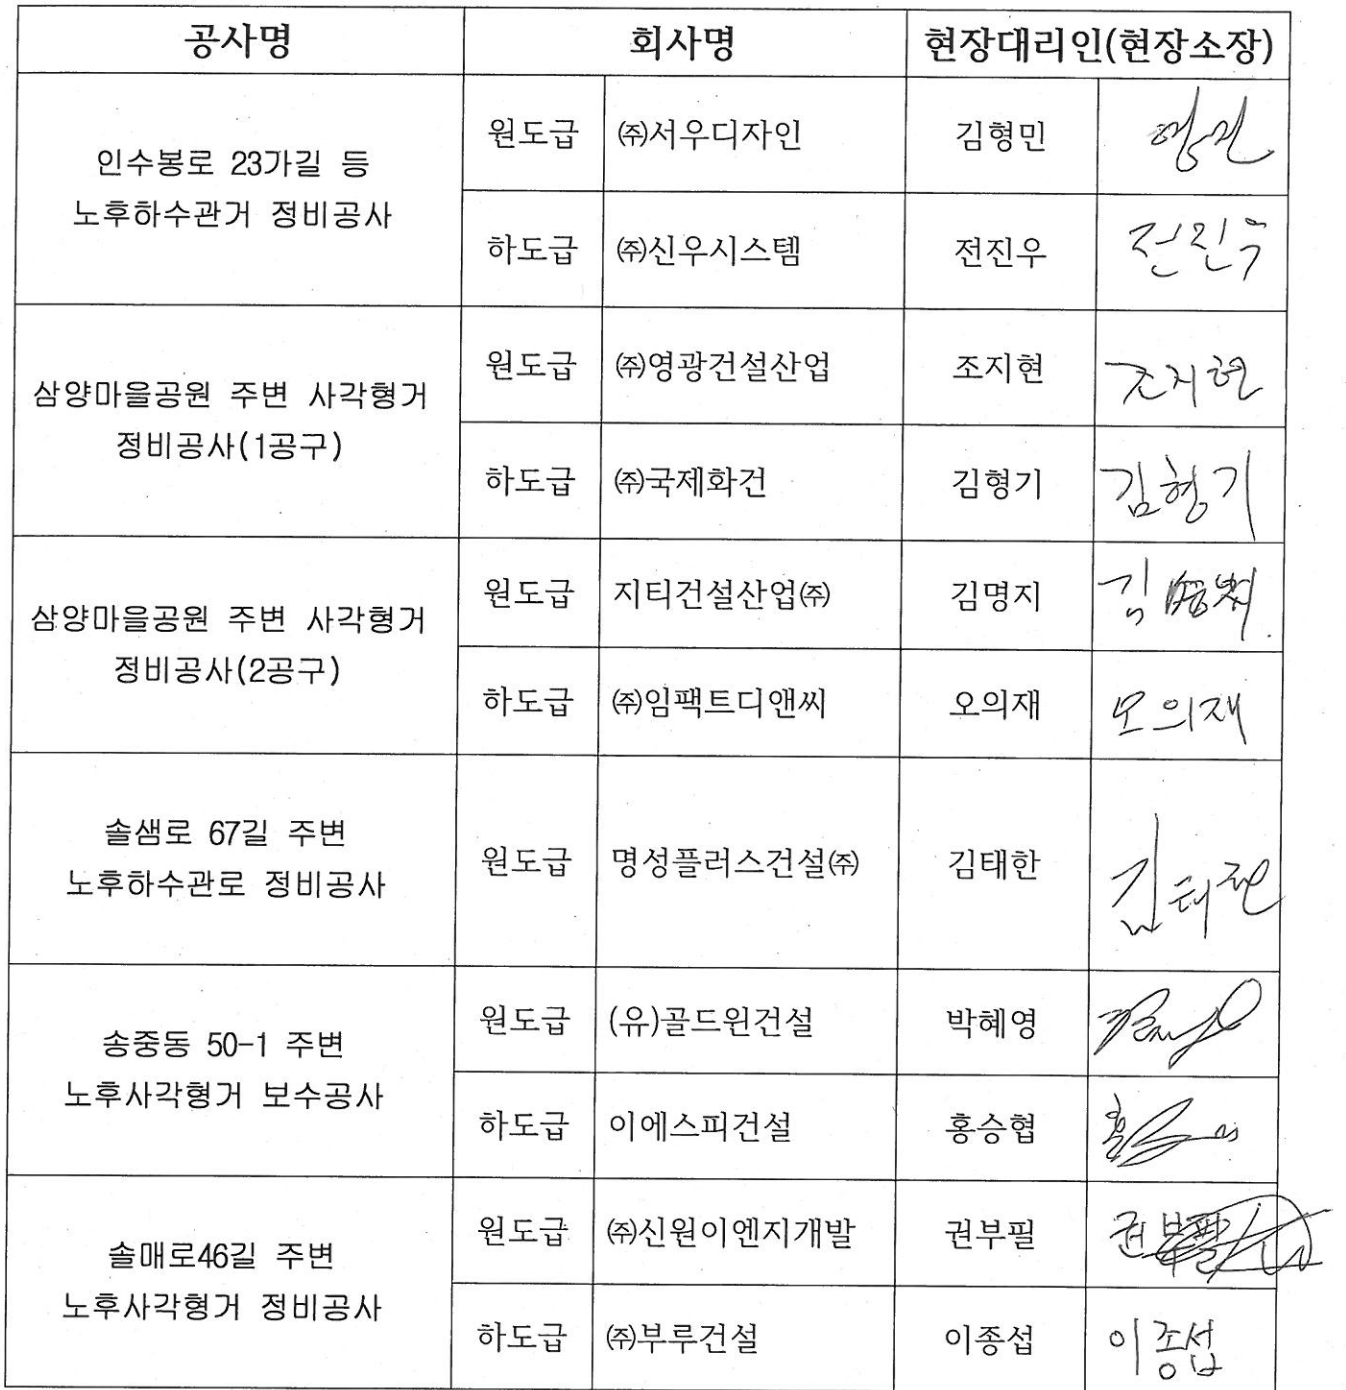 공사명 회사명 현장대리인(현장소장)
인수봉로 23가길 등
노후하수관거 정비공사
원도급 ㈜서우디자인 김형민 형민
하도급 ㈜신우시스템 전진우 전진우
삼양마을공원 주변 사각형거
정비공사(1공구)
원도급 ㈜영광건설산업 조지현 조지현
하도급 ㈜국제화건 김형기 김형기
삼양마을공원 주변 사각형거
정비공사(2공구)
원도급 지티건설산업㈜ 김명지 김
하도급 ㈜임팩트디앤씨 오의재 오의재
솔샘로 67길 주변
노후하수관로 정비공사
원도급 명성플러스건설㈜ 김태한 김태한
송중동 50-1 주변
노후사각형거 보수공사
원도급 (유)골드윈건설 박혜영
하도급 이에스피건설 홍승협 홍
솔매로46길 주변
노후사각형거 정비공사
원도급 ㈜신원이엔지개발 권부필 권부필
하도급 ㈜부루건설 이종섭 이종섭